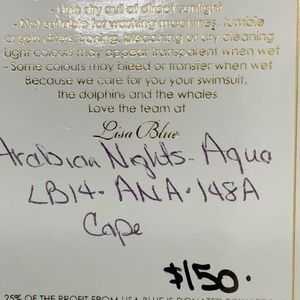 - Line dry out of direct sunlight
- Not suitable for washing machines, tumble
or spin driers, ironing, bleaching or dry cleaning
Light colours may appear transparent when wet
- Some colours may bleed or transfer when wet
Because we care for you your swimsuit,
the dolphins and the whales
Love the team at
Lisa Blue
Arabian Nights - Aqua
LB14 - ANA - 148A
Cape
$150.
25% OF THE PROFIT FROM LISA BLUE IS DONATED